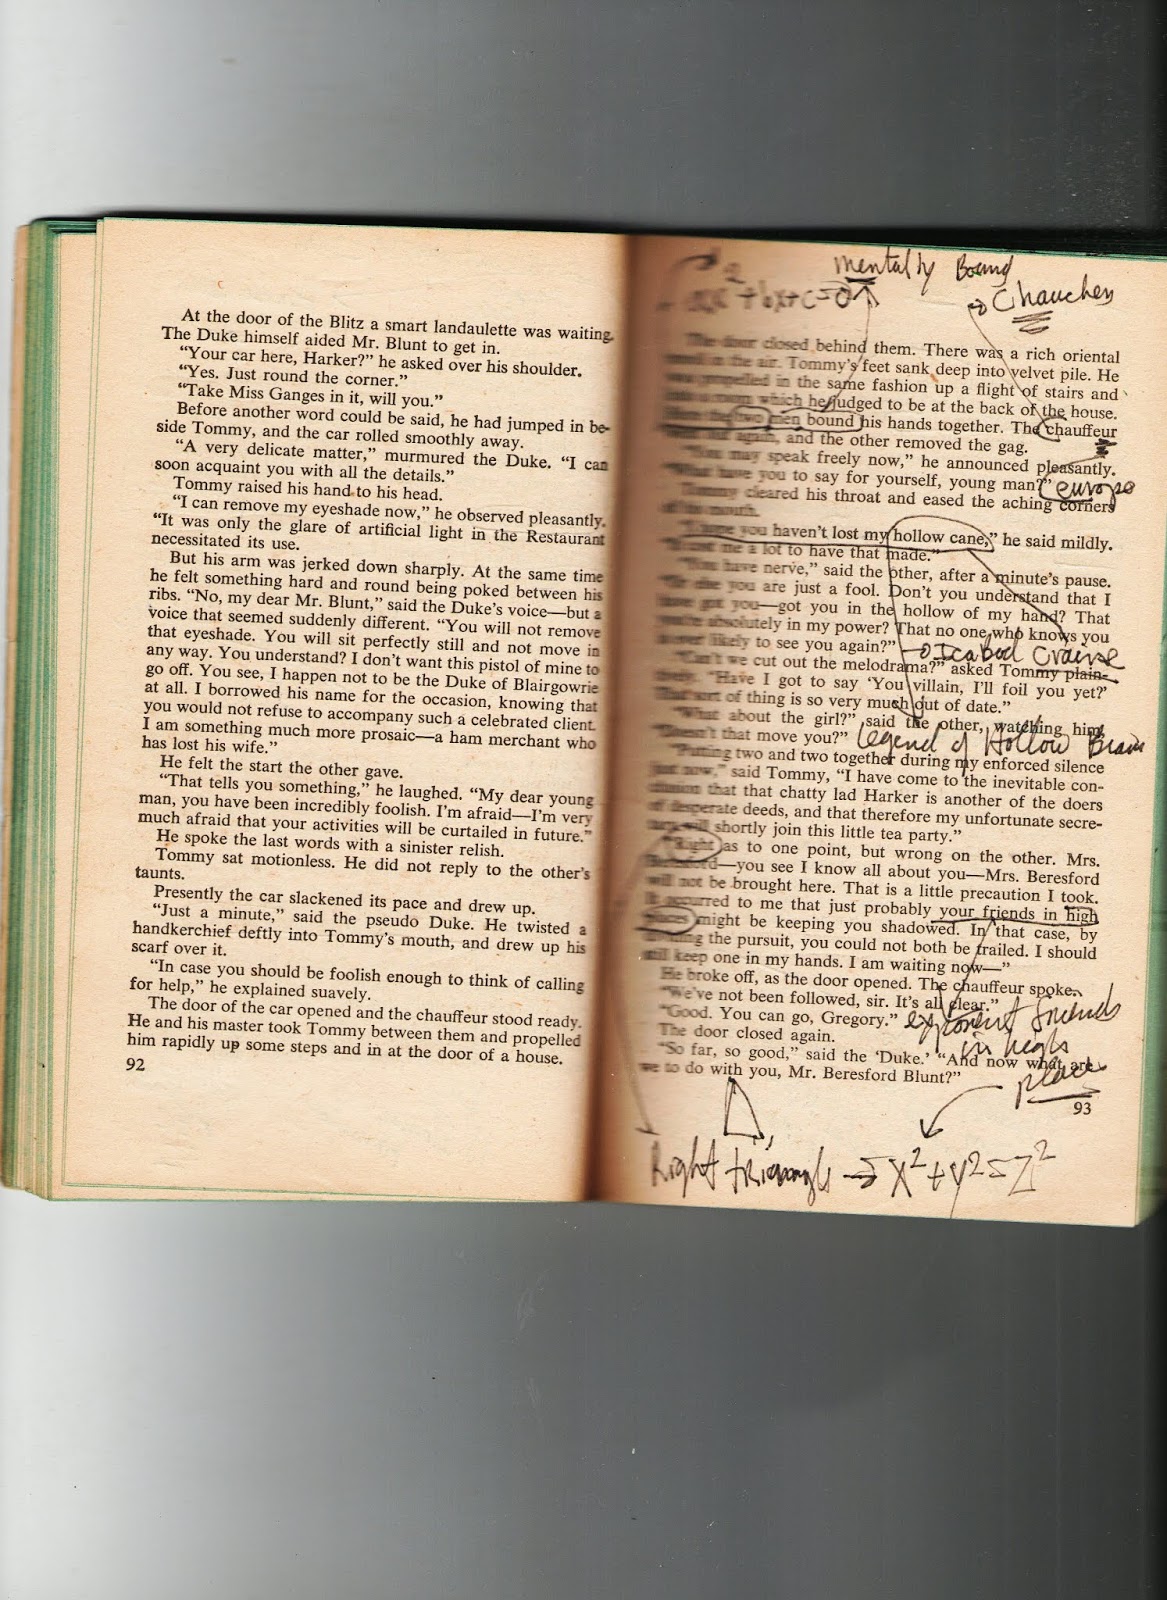 At the door of the Blitz a smart landaulette was waiting.
The Duke himself aided Mr. Blunt to get in.
“Your car here, Harker?” he asked over his shoulder.
“Yes. Just round the corner.”
“Take Miss Ganges in it, will you.”
Before another word could be said, he had jumped in be-
side Tommy, and the car rolled smoothly away.
“A very delicate matter,” murmured the Duke. “I can
soon acquaint you with all the details.”
Tommy raised his hand to his head.
“I can remove my eyeshade now,” he observed pleasantly.
“It was only the glare of artificial light in the Restaurant
necessitated its use.
But his arm was jerked down sharply. At the same time
he felt something hard and round being poked between his
ribs. “No, my dear Mr. Blunt,” said the Duke’s voice—but a
voice that seemed suddenly different. “You will not remove
that eyeshade. You will sit perfectly still and not move in
any way. You understand? I don’t want this pistol of mine to
go off. You see, I happen not to be the Duke of Blairgowrie
at all. I borrowed his name for the occasion, knowing that
you would not refuse to accompany such a celebrated client.
I am something much more prosaic—a ham merchant who
has lost his wife.”
He felt the start the other gave.
“That tells you something,” he laughed. “My dear young
man, you have been incredibly foolish. I’m afraid—I’m very
much afraid that your activities will be curtailed in future.”
He spoke the last words with a sinister relish.
Tommy sat motionless. He did not reply to the other’s
taunts.
Presently the car slackened its pace and drew up.
“Just a minute,” said the pseudo Duke. He twisted a
handkerchief deftly into Tommy’s mouth, and drew up his
scarf over it.
“In case you should be foolish enough to think of calling
for help,” he explained suavely.
The door of the car opened and the chauffeur stood ready.
He and his master took Tommy between them and propelled
him rapidly up some steps and in at the door of a house.
92
mentally Bound
x²+bx+c=0
The door closed behind them. There was a rich oriental
in the air. Tommy’s feet sank deep into velvet pile. He
was propelled in the same fashion up a flight of stairs and
into a room which he judged to be at the back of the house.
Here the two men bound his hands together. The chauffeur
went out again, and the other removed the gag.
“You may speak freely now,” he announced pleasantly.
“What have you to say for yourself, young man?”
europe
Tommy cleared his throat and eased the aching corners
of his mouth.
“I hope you haven’t lost my hollow cane,” he said mildly.
“It cost me a lot to have that made.”
“You have nerve,” said the other, after a minute’s pause.
“Or else you are just a fool. Don’t you understand that I
have got you—got you in the hollow of my hand? That
you’re absolutely in my power? That no one who knows you
is ever likely to see you again?”
Icabod Craine
“Can’t we cut out the melodrama?” asked Tommy plain-
tively. “Have I got to say ‘You villain, I’ll foil you yet?’
That sort of thing is so very much out of date.”
“What about the girl?” said the other, watching him.
“Doesn’t that move you?”
legend of Hollow
“Putting two and two together during my enforced silence
just now,” said Tommy, “I have come to the inevitable con-
clusion that that chatty lad Harker is another of the doers
of desperate deeds, and that therefore my unfortunate secre-
tary will shortly join this little tea party.”
“Right as to one point, but wrong on the other. Mrs.
Beresford—you see I know all about you—Mrs. Beresford
will not be brought here. That is a little precaution I took.
It occurred to me that just probably your friends in high
places might be keeping you shadowed. In that case, by
dividing the pursuit, you could not both be trailed. I should
still keep one in my hands. I am waiting now—”
He broke off, as the door opened. The chauffeur spoke.
“We’ve not been followed, sir. It’s all clear.”
“Good. You can go, Gregory.”
exponent friends
in high
place
The door closed again.
“So far, so good,” said the ‘Duke.’ “And now what are
we to do with you, Mr. Beresford Blunt?”
93
Right triangle → x²+y²=z²